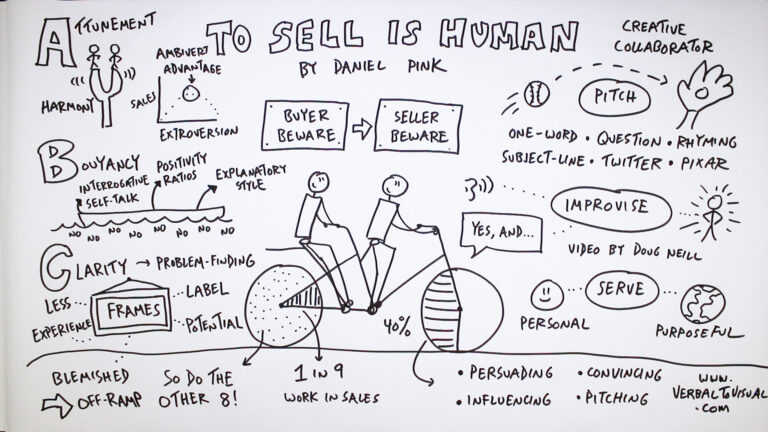 TO SELL IS HUMAN
BY DANIEL PINK
ATTUNEMENT
HARMONY
AMBIVERT
ADVANTAGE
SALES
EXTROVERSION
BUOYANCY
INTERROGATIVE
SELF-TALK
POSITIVITY
RATIOS
EXPLANATORY
STYLE
NO NO NO NO NO NO NO NO
CLARITY → PROBLEM-FINDING
LESS
EXPERIENCE
FRAMES
LABEL
POTENTIAL
BLEMISHED
OFF-RAMP
BUYER
BEWARE
SELLER
BEWARE
SO DO THE
OTHER 8!
1 IN 9
WORK IN SALES
40%
• PERSUADING • CONVINCING
• INFLUENCING • PITCHING
CREATIVE
COLLABORATOR
PITCH
ONE-WORD • QUESTION • RHYMING
SUBJECT-LINE • TWITTER • PIXAR
IMPROVISE
YES, AND...
VIDEO BY DOUG NEILL
SERVE
PERSONAL
PURPOSEFUL
WWW.
VERBALTOVISUAL
.COM